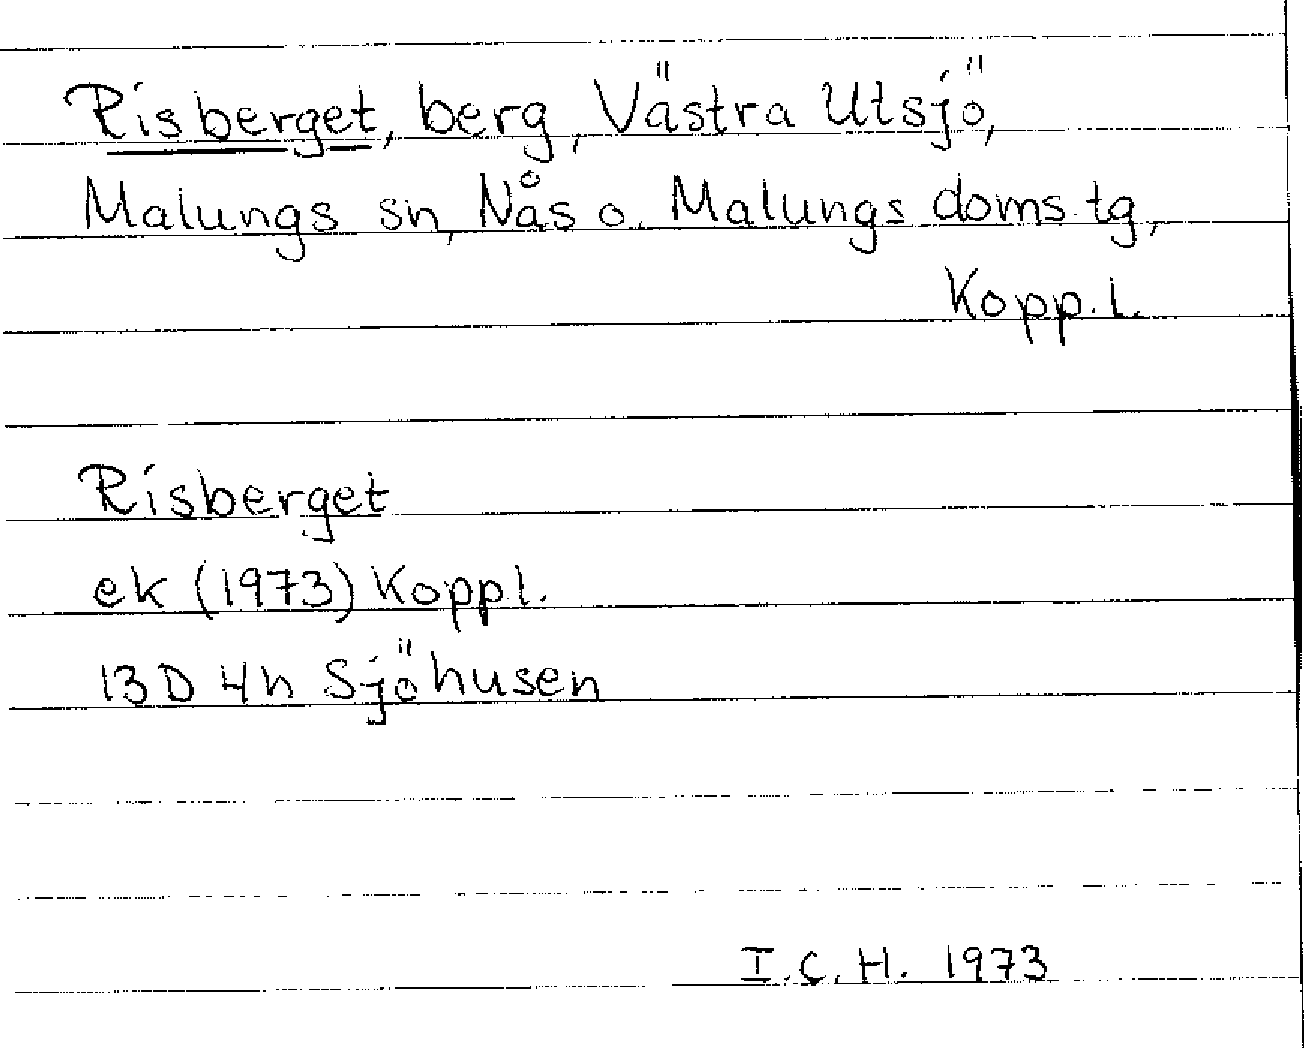 Risberget, berg, Västra Utsjö,
Malungs sn, Nås o. Malungs doms.tg,
Kopp.l.
Risberget
ek (1973) Koppl.
13D 4h Sjöhusen
I.C.H. 1973